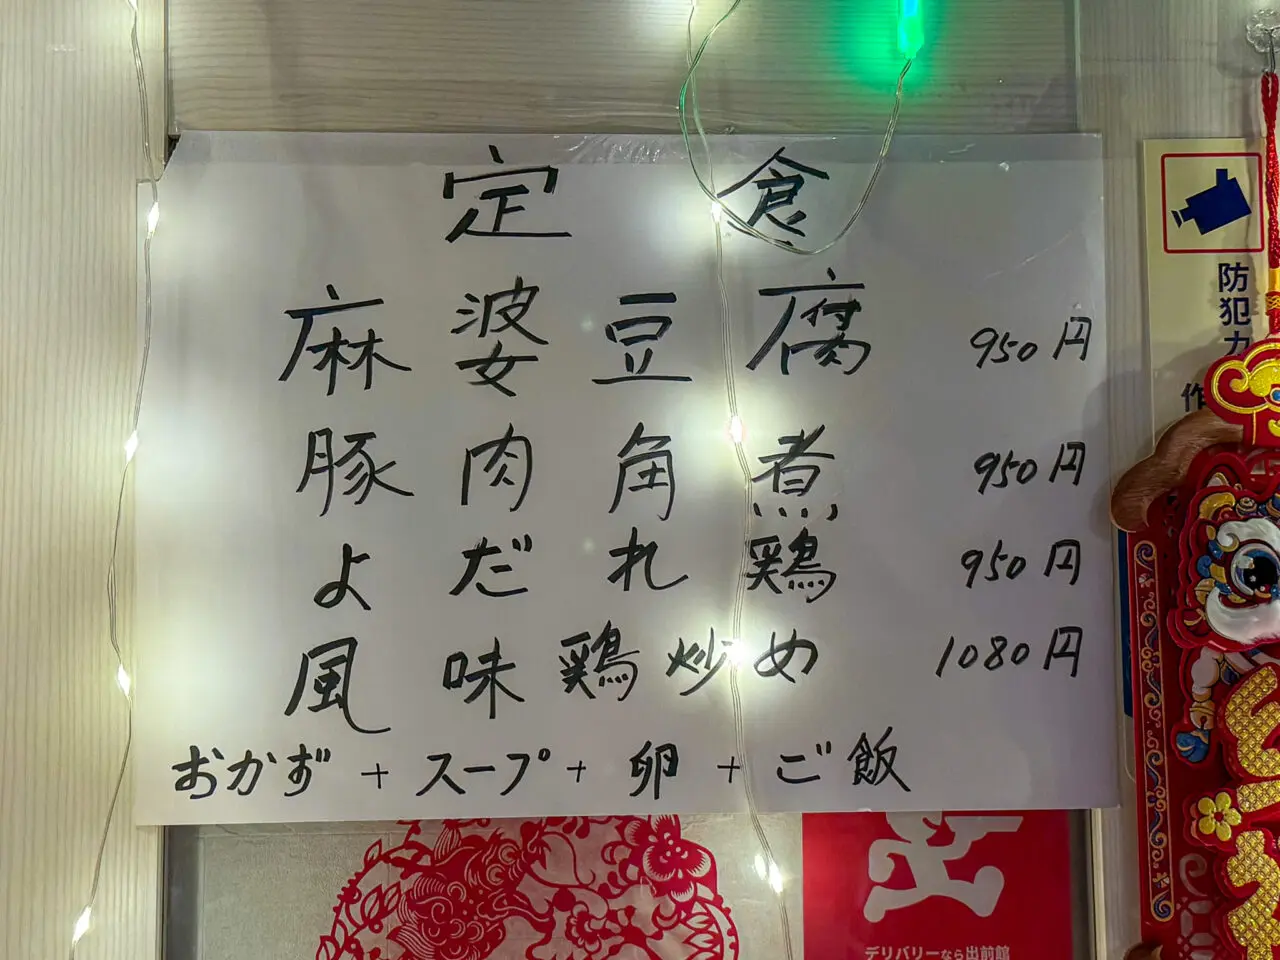 定食
麻婆豆腐 950円
豚肉角煮 950円
よだれ鶏 950円
風味鶏炒め 1080円
おかず + スープ + 卵 + ご飯
防犯カ
作
デリバリーなら出前館